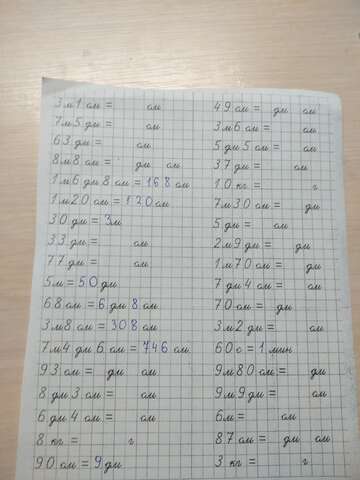 3м1см =      см
7м5дм =      см
63дм =      см
8м8см =      дм   см
1м6дм8см = 168см
1м20см = 120см
30дм = 3м
33дм =      см
77дм =      см
5м = 50дм
68см = 6дм 8см
3м8см = 308см
7м4дм6см = 746см
93см =   дм   см
8дм3см =      см
6дм4см =      см
8кг =      г
90см = 9дм
49см =   дм   см
3м6см =      см
5дм5см =      см
37дм =      см
10кг =      г
7м30см =      дм
5дм =      см
2м9дм =      дм
1м70см =      дм
7дм4см =      см
70см =   дм
3м2дм =      см
60с = 1мин
9м80см =      дм
9м9дм =      см
6м =      см
87см =   дм   см
3кг =      г